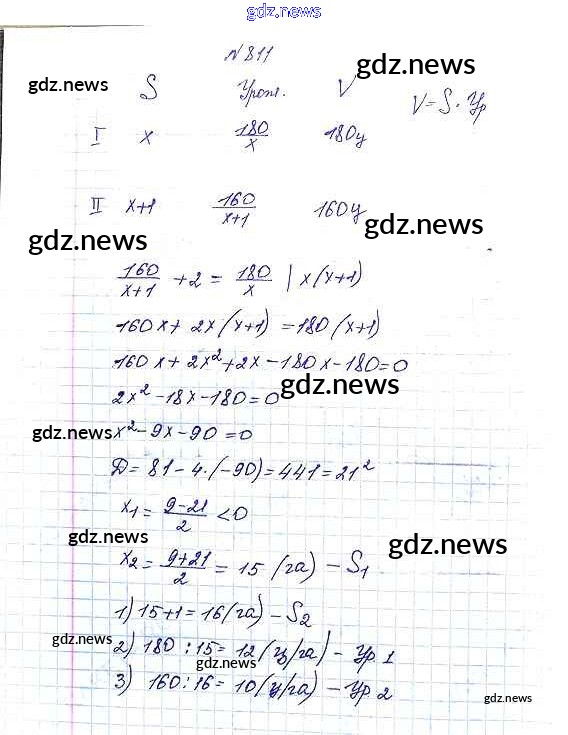 gdz.news
N 811
gdz.news
gdz.news
S Урож. V V=S·Ур
I x 180/x 180ц
II x+1 160/(x+1) 160ц
gdz.news
gdz.news
160/(x+1) +2 = 180/x | x(x+1)
160x+2x(x+1)=180(x+1)
160x+2x²+2x-180x-180=0
gdz.news
2x²-18x-180=0
gdz.news
x²-9x-90=0
Д=81-4·(-90)=441=21²
gdz.news
x₁=(9-21)/2 <0
gdz.news
gdz.news
x₂=(9+21)/2=15 (га) - S₁
1) 15+1=16(га) - S₂
gdz.news
2) 180:15=12(ц/га) - Ур 1
gdz.news
3) 160:16=10(ц/га) - Ур 2
gdz.news